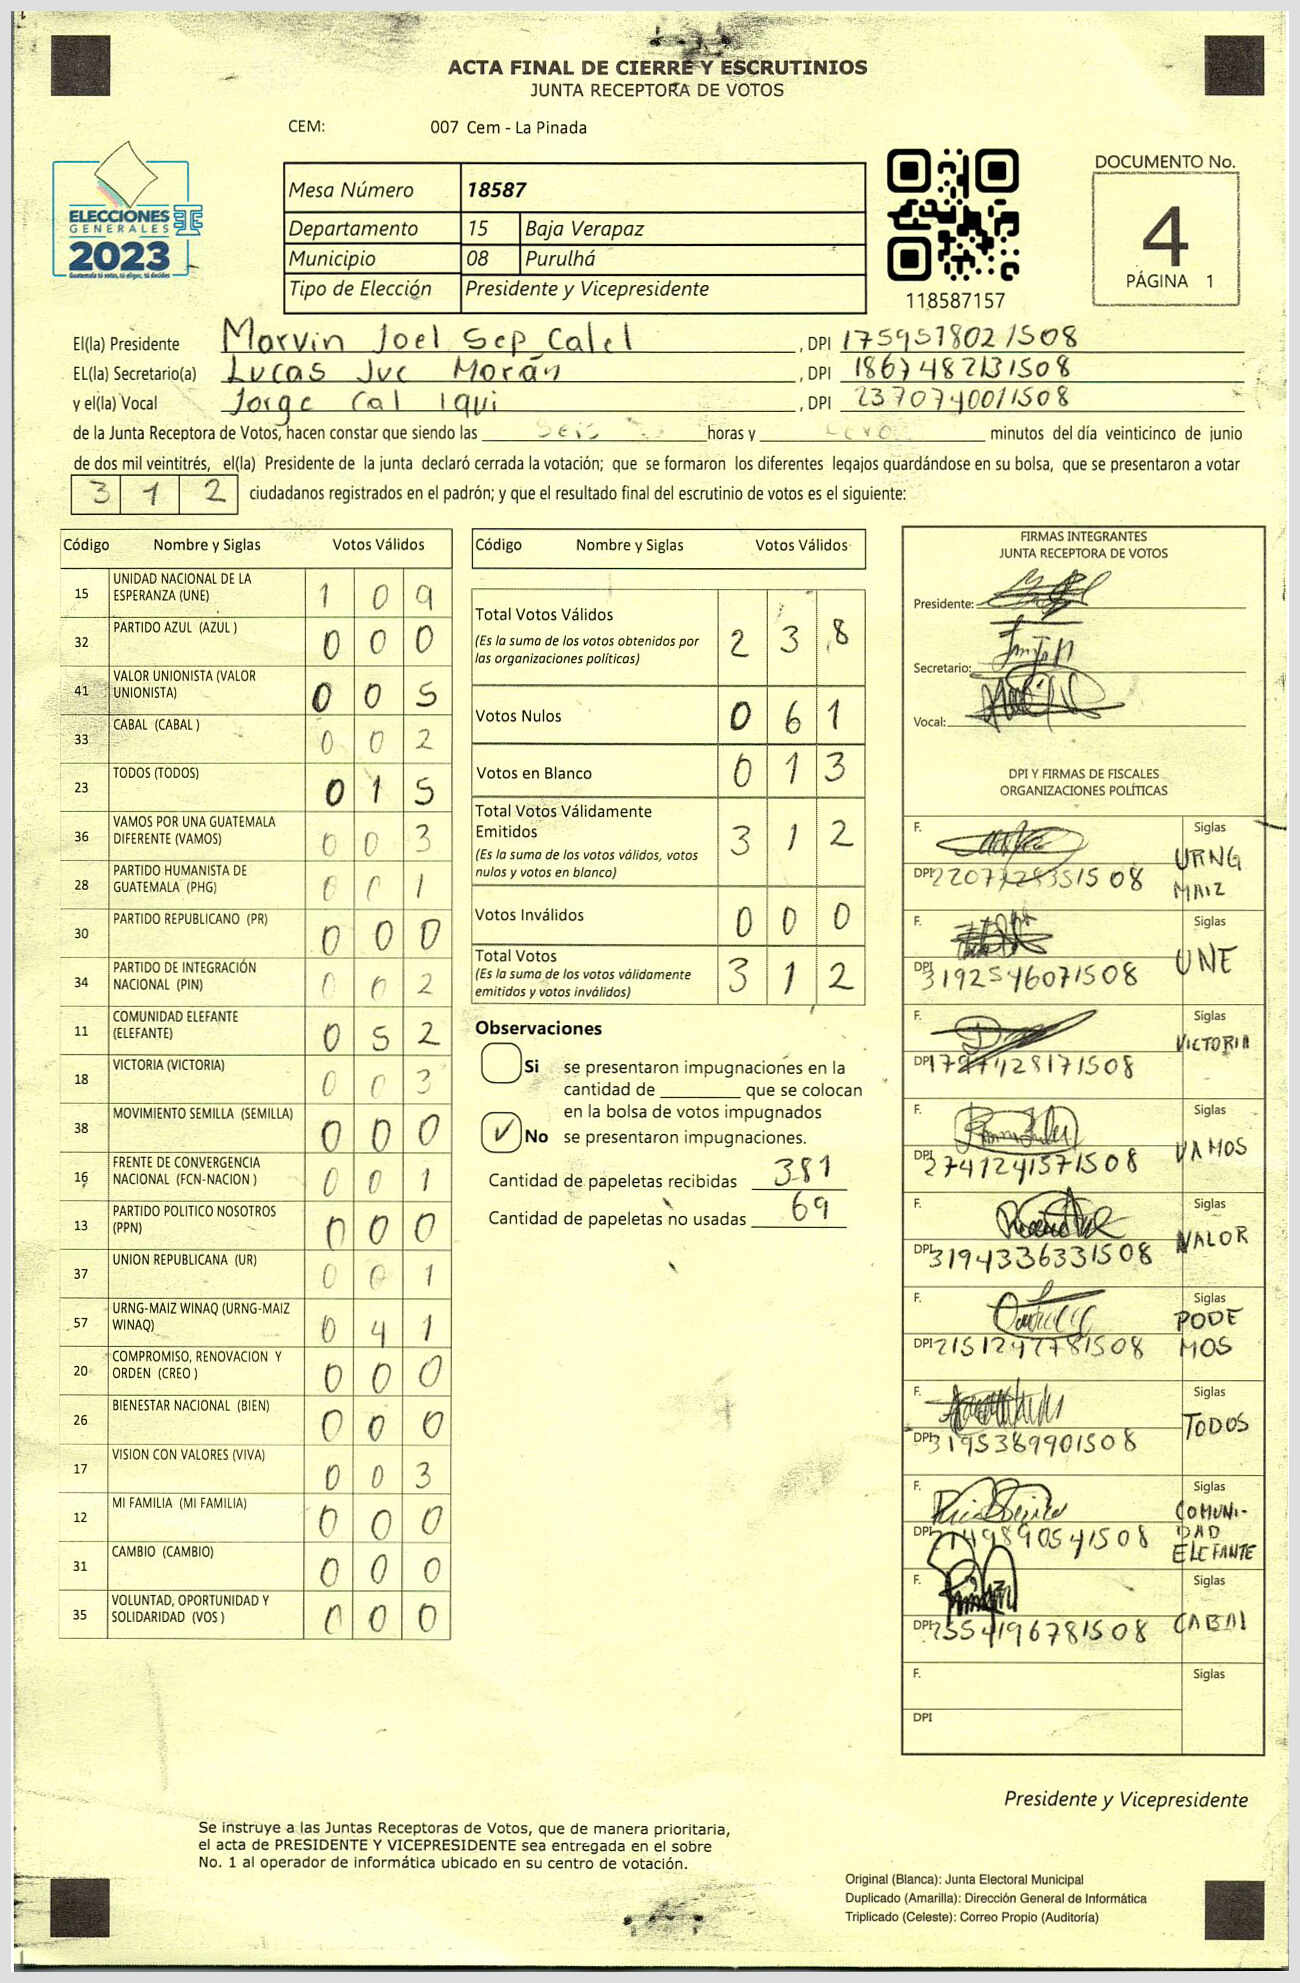 ACTA FINAL DE CIERRE Y ESCRUTINIOS
JUNTA RECEPTORA DE VOTOS
CEM: 007 Cem - La Pinada
ELECCIONES
GENERALES
2023
Guatemala tú votas, tú eliges, tú decides
Mesa Número 18587
Departamento 15 Baja Verapaz
Municipio 08 Purulhá
Tipo de Elección Presidente y Vicepresidente
118587157
DOCUMENTO No.
4
PÁGINA 1
El(la) Presidente Marvin Joel Sep Calel, DPI 1759518021508
EL(la) Secretario(a) Lucas Juc Morán, DPI 1867482131508
y el(la) Vocal Jorge Cal Iqui, DPI 2370740011508
de la Junta Receptora de Votos, hacen constar que siendo las seis horas y cero minutos del día veinticinco de junio
de dos mil veintitrés, el(la) Presidente de la junta declaró cerrada la votación; que se formaron los diferentes legajos guardándose en su bolsa, que se presentaron a votar
312 ciudadanos registrados en el padrón; y que el resultado final del escrutinio de votos es el siguiente:
Código Nombre y Siglas Votos Válidos
15 UNIDAD NACIONAL DE LA ESPERANZA (UNE) 1 0 9
32 PARTIDO AZUL (AZUL ) 0 0 0
41 VALOR UNIONISTA (VALOR UNIONISTA) 0 0 5
33 CABAL (CABAL ) 0 0 2
23 TODOS (TODOS) 0 1 5
36 VAMOS POR UNA GUATEMALA DIFERENTE (VAMOS) 0 0 3
28 PARTIDO HUMANISTA DE GUATEMALA (PHG) 0 0 1
30 PARTIDO REPUBLICANO (PR) 0 0 0
34 PARTIDO DE INTEGRACIÓN NACIONAL (PIN) 0 0 2
11 COMUNIDAD ELEFANTE (ELEFANTE) 0 5 2
18 VICTORIA (VICTORIA) 0 0 3
38 MOVIMIENTO SEMILLA (SEMILLA) 0 0 0
16 FRENTE DE CONVERGENCIA NACIONAL (FCN-NACION ) 0 0 1
13 PARTIDO POLITICO NOSOTROS (PPN) 0 0 0
37 UNION REPUBLICANA (UR) 0 0 1
57 URNG-MAIZ WINAQ (URNG-MAIZ WINAQ) 0 4 1
20 COMPROMISO, RENOVACION Y ORDEN (CREO ) 0 0 0
26 BIENESTAR NACIONAL (BIEN) 0 0 0
17 VISION CON VALORES (VIVA) 0 0 3
12 MI FAMILIA (MI FAMILIA) 0 0 0
31 CAMBIO (CAMBIO) 0 0 0
35 VOLUNTAD, OPORTUNIDAD Y SOLIDARIDAD (VOS ) 0 0 0
Código Nombre y Siglas Votos Válidos
Total Votos Válidos 2 3 8
(Es la suma de los votos obtenidos por
las organizaciones políticas)
Votos Nulos 0 6 1
Votos en Blanco 0 1 3
Total Votos Válidamente
Emitidos 3 1 2
(Es la suma de los votos válidos, votos
nulos y votos en blanco)
Votos Inválidos 0 0 0
Total Votos 3 1 2
(Es la suma de los votos válidamente
emitidos y votos inválidos)
Observaciones
Si se presentaron impugnaciones en la
cantidad de ________ que se colocan
en la bolsa de votos impugnados
✓ No se presentaron impugnaciones.
Cantidad de papeletas recibidas 381
Cantidad de papeletas no usadas 69
FIRMAS INTEGRANTES
JUNTA RECEPTORA DE VOTOS
Presidente:
Secretario:
Vocal:
DPI Y FIRMAS DE FISCALES
ORGANIZACIONES POLÍTICAS
F. Siglas
DPI URNG MAIZ
F. Siglas
DPI 3192546071508 UNE
F. Siglas
DPI VICTORIA
F. Siglas
DPI 2741241571508 VAMOS
F. Siglas
DPI 3194336331508 VALOR
F. Siglas
DPI 2151242781508 PODE MOS
F. Siglas
DPI 3195389901508 TODOS
F. Siglas
DPI COMUNI- DAD ELEFANTE
F. Siglas
DPI 2554196781508 CABAL
F. Siglas
DPI
Presidente y Vicepresidente
Se instruye a las Juntas Receptoras de Votos, que de manera prioritaria,
el acta de PRESIDENTE Y VICEPRESIDENTE sea entregada en el sobre
No. 1 al operador de informática ubicado en su centro de votación.
Original (Blanca): Junta Electoral Municipal
Duplicado (Amarilla): Dirección General de Informática
Triplicado (Celeste): Correo Propio (Auditoría)